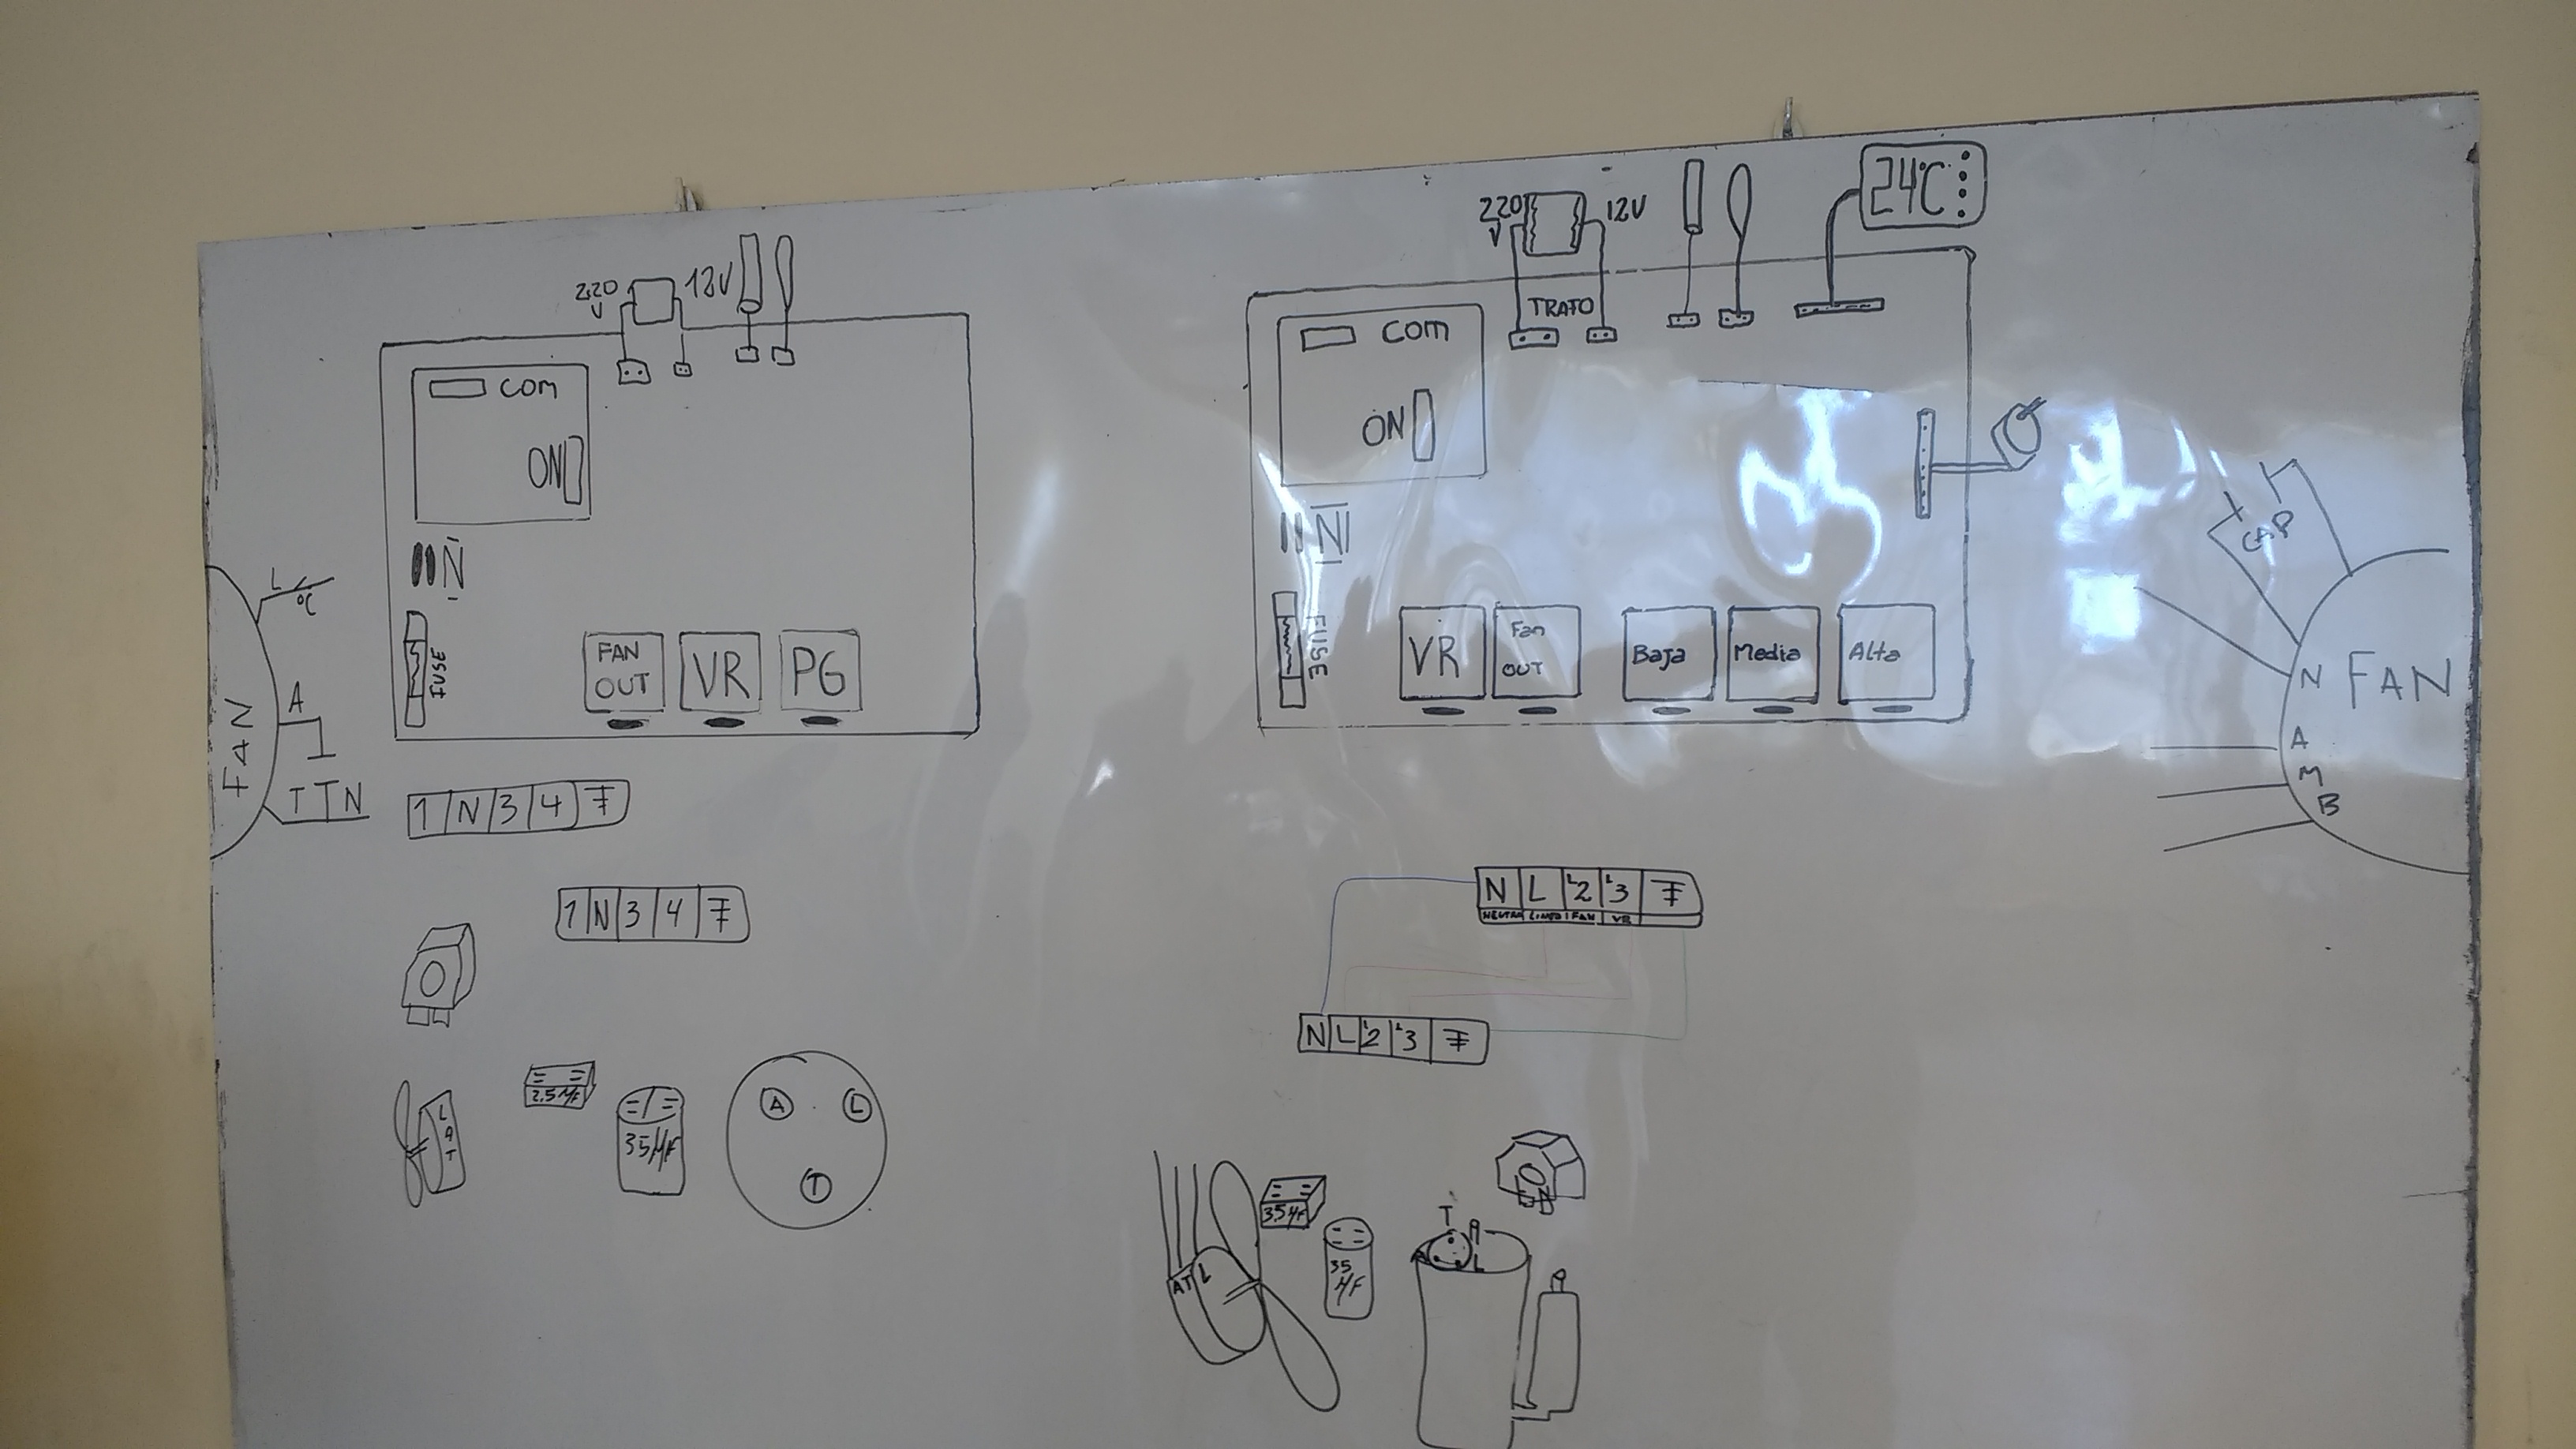 220
V
12V
COM
ON
N
FUSE
FAN
OUT
VR
PG
FAN
L
°C
A
T
N
1 N 3 4
1 N 3 4
2.5 µF
35 µF
L
A
T
A
L
T
220
V
12V
TRAFO
24°C
COM
ON
N
FUSE
VR
Fan
OUT
Baja
Media
Alta
CAP
FAN
N
A
M
B
N L L2 L3
NEUTRO LINEA FAN VR
N L L2 L3
3.5 µF
35
µF
A T L
T
A
L